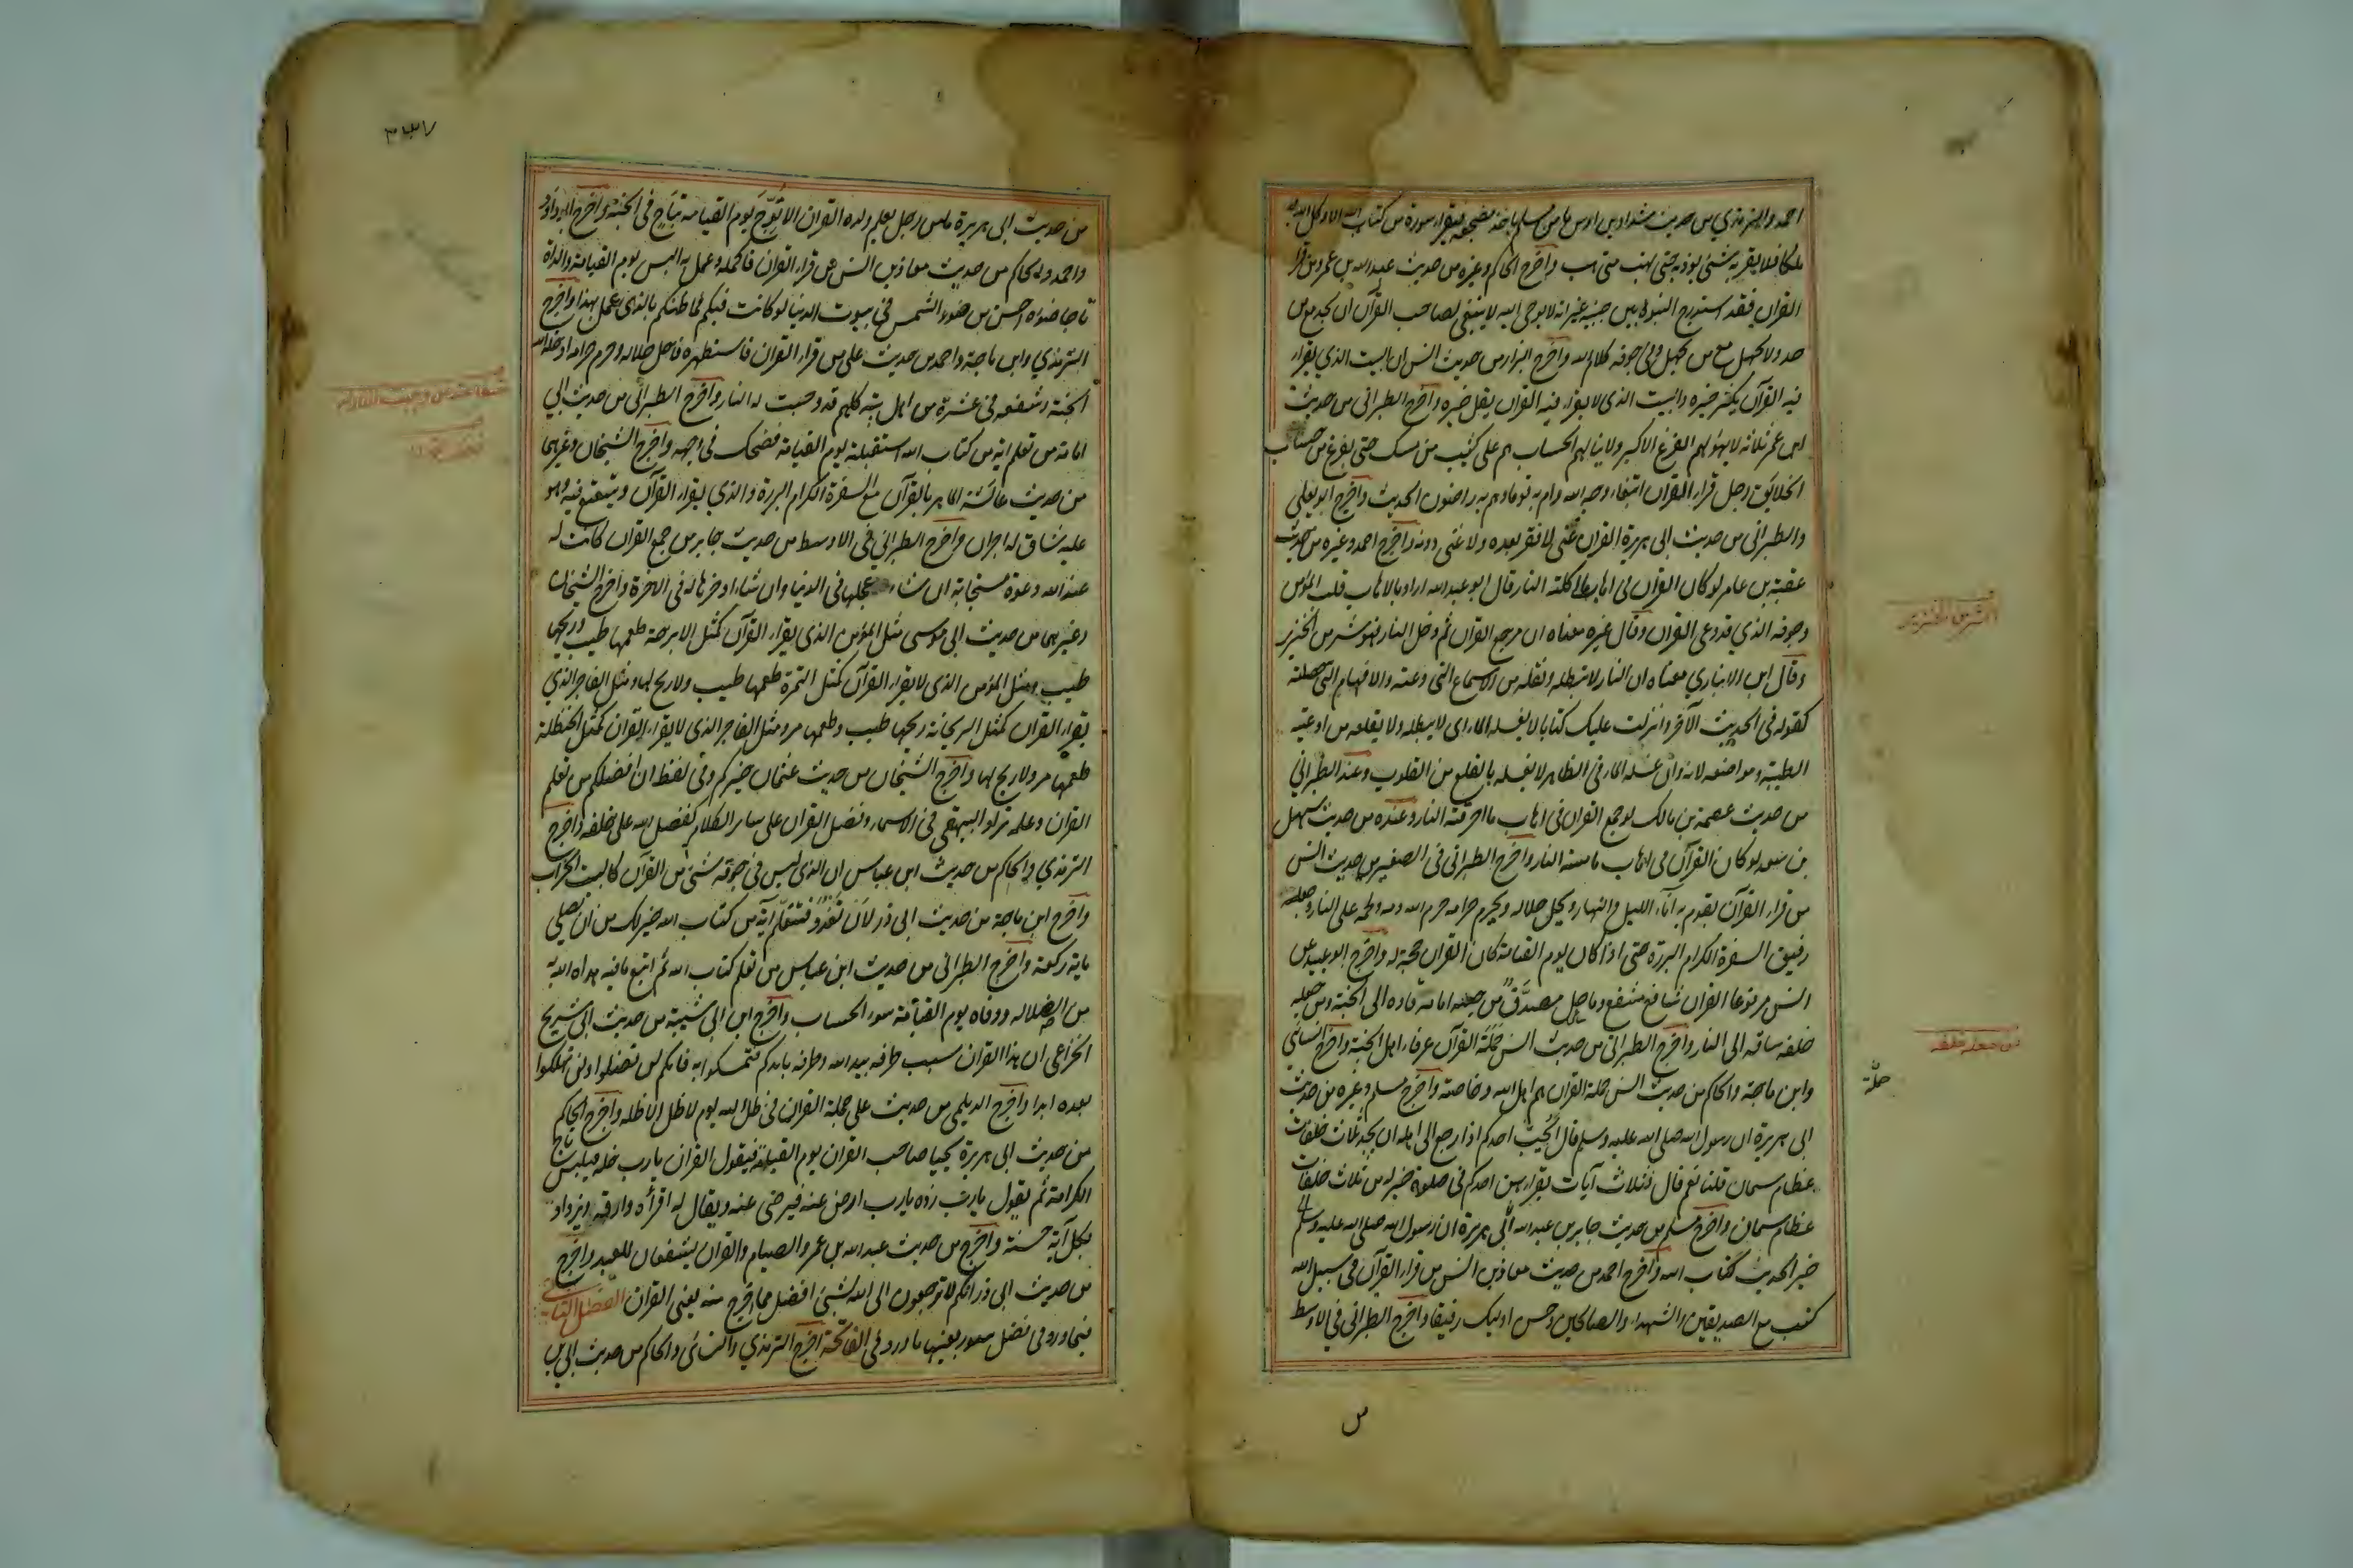 احمد والترمذي من حديث شداد بن اوس ما من مسلم ياخذ مضجعه فيقراء سورة من كتاب الله الا وكل الله به
ملكا فلا يقربه شئ يوذيه حتى يهب متى هب واخرج الحاكم وغيره من حديث عبد الله بن عمرو من قراء
القران فقد استدرج النبوة بين جنبيه غير انه لا يوحى اليه لا ينبغي لصاحب القرآن ان يجد مع من
حد ولا يجهل مع من يجهل وفي جوفه كلام الله واخرج البزار من حديث انس ان البيت الذي يقراء
فيه القرآن يكثر خيره والبيت الذي لا يقراء فيه القرآن يقل خيره واخرج الطبراني من حديث
ابن عمر ثلاثة لا يهولهم الفزع الاكبر ولا ينالهم الحساب هم على كثيب من مسك حتى يفرغ من حساب
الخلايق رجل قراء القران ابتغاء وجه الله وام به قوما وهم به راضون الحديث واخرج ابو يعلى
والطبراني من حديث ابي هريرة القران غنى لا فقر بعده ولا غنى دونه واخرج احمد وغيره من حديث
عقبة بن عامر لو كان القرآن في اهاب ما اكلته النار قال ابو عبيد الله اراد بالاهاب قلب المؤمن
وجوفه الذي قد وعى القران وقال غيره معناه ان من جمع القران ثم دخل النار فهو شر من الخنزير
وقال ابن الانباري معناه ان النار لا تبطله وتقله من الاسماع التي وعته والافهام التي حصلته
كقوله في الحديث الآخر وانزلت عليك كتابا لا يغسله الماء اى لا يبطله ولا يقلعه من اوعيته
الطيبة ومواضعه لانه وان غسله الماء في الظاهر لا يغسله بالقلع من القلوب وعند الطبراني
من حديث عصمة بن مالك لو جمع القران في اهاب ما احرقته النار وعنده من حديث سهل
بن سعد لو كان القرآن في اهاب ما مسته النار واخرج الطبراني في الصغير من حديث انس
من قراء القرآن يقوم به آناء الليل والنهار ويحل حلاله ويحرم حرامه حرم الله دمه ولحمه على النار وجعله
رفيق السفرة الكرام البررة حتى اذا كان يوم القيامة كان القران حجة له واخرج ابو عبيد عن
انس مرفوعا القران شافع مشفع وماحل مصدق من جعله امامه قاده الى الجنة ومن جعله
خلفه ساقه الى النار واخرج الطبراني من حديث انس حملة القرآن عرفاء اهل الجنة واخرج النسائي
وابن ماجة والحاكم من حديث انس حملة القران هم اهل الله وخاصته واخرج مسلم وغيره من حديث
ابي هريرة ان رسول الله صلى الله عليه وسلم قال أيحب احدكم اذا رجع الى اهله ان يجد ثلاث خلفات
عظام سمان قلنا نعم قال فثلاث آيات يقراء بهن احدكم في صلوة خير له من ثلاث خلفات
عظام سمان واخرج مسلم من حديث جابر بن عبد الله ابي هريرة ان رسول الله صلى الله عليه وسلم
خير الحديث كتاب الله واخرج احمد من حديث معاذ بن انس من قراء القرآن في سبيل الله
كتب مع الصديقين والشهداء والصالحين وحسن اوليك رفيقا واخرج الطبراني في الاوسط
من جعله خلفه
حملة
من
٣٣٧
من حديث ابي هريرة ما من رجل يعلم ولده القران الا توج يوم القيامة بتاج في الجنة واخرج ابو داود
واحمد والحاكم من حديث معاذ بن انس من قراء القران فاكمله وعمل به البس يوم القيامة والداه
تاجا ضوءه احسن من ضوء الشمس في بيوت الدنيا لو كانت فيكم فما ظنكم بالذي عمل بهذا واخرج
الترمذي وابن ماجة واحمد من حديث على من قراء القران فاستظهره فاحل حلاله وحرم حرامه ادخله الله
الجنة وشفعه في عشرة من اهل بيته كلهم قد وجبت له النار واخرج الطبراني من حديث ابي
امامة من تعلم اية من كتاب الله استقبلته يوم القيامة تضحك في وجهه واخرج الشيخان وغيرهما
من حديث عائشة الماهر بالقرآن مع السفرة الكرام البررة والذي يقراء القرآن ويتتعتع فيه وهو
عليه شاق له اجران واخرج الطبراني في الاوسط من حديث جابر من جمع القران كانت له
عند الله دعوة مستجابة ان شاء عجلها في الدنيا وان شاء ادخرها له في الاخرة واخرج الشيخان
وغيرهما من حديث ابي موسى مثل المؤمن الذي يقراء القرآن كمثل الاترجة طعمها طيب وريحها
طيب ومثل المؤمن الذي لا يقراء القرآن كمثل التمرة طعمها طيب ولا ريح لها ومثل الفاجر الذي
يقراء القران كمثل الريحانة ريحها طيب وطعمها مر ومثل الفاجر الذي لا يقراء القران كمثل الحنظلة
طعمها مر ولا ريح لها واخرج الشيخان من حديث عثمان خيركم وفي لفظ ان افضلكم من تعلم
القران وعلمه زاد البيهقي في الاسماء وفضل القران على ساير الكلام كفضل الله على خلقه واخرج
الترمذي والحاكم من حديث ابن عباس ان الذي ليس في جوفه شئ من القرآن كالبيت الخراب
واخرج ابن ماجة من حديث ابي ذر لان تغدو فتتعلم آية من كتاب الله خير لك من ان تصلي
ماية ركعة واخرج الطبراني من حديث ابن عباس من تعلم كتاب الله ثم اتبع ما فيه هداه الله به
من الضلالة ووقاه يوم القيامة سوء الحساب واخرج ابن ابي شيبة من حديث ابي شريح
الخزاعي ان هذا القران سبب طرفه بيد الله وطرفه بايديكم فتمسكوا به فانكم لن تضلوا ولن تهلكوا
بعده ابدا واخرج الديلمي من حديث على حملة القران في ظل الله يوم لا ظل الا ظله واخرج الحاكم
من حديث ابي هريرة يجيا صاحب القران يوم القيامة فيقول القران يارب حله فيلبس تاج
الكرامة ثم يقول يارب زده يارب ارض عنه فيرضى عنه ويقال له اقرأه وارقه ويزداد
بكل آية حسنة واخرج من حديث عبد الله بن عمر والصيام والقران يشفعان للعبد واخرج
من حديث ابي ذر انكم لا ترجعون الى الله بشئ افضل مما خرج منه يعني القران الفصل الثاني
فيما ورد في فضل سور بعينها ما ورد في الفاتحة اخرج الترمذي والنسائى والحاكم من حديث ابي بن